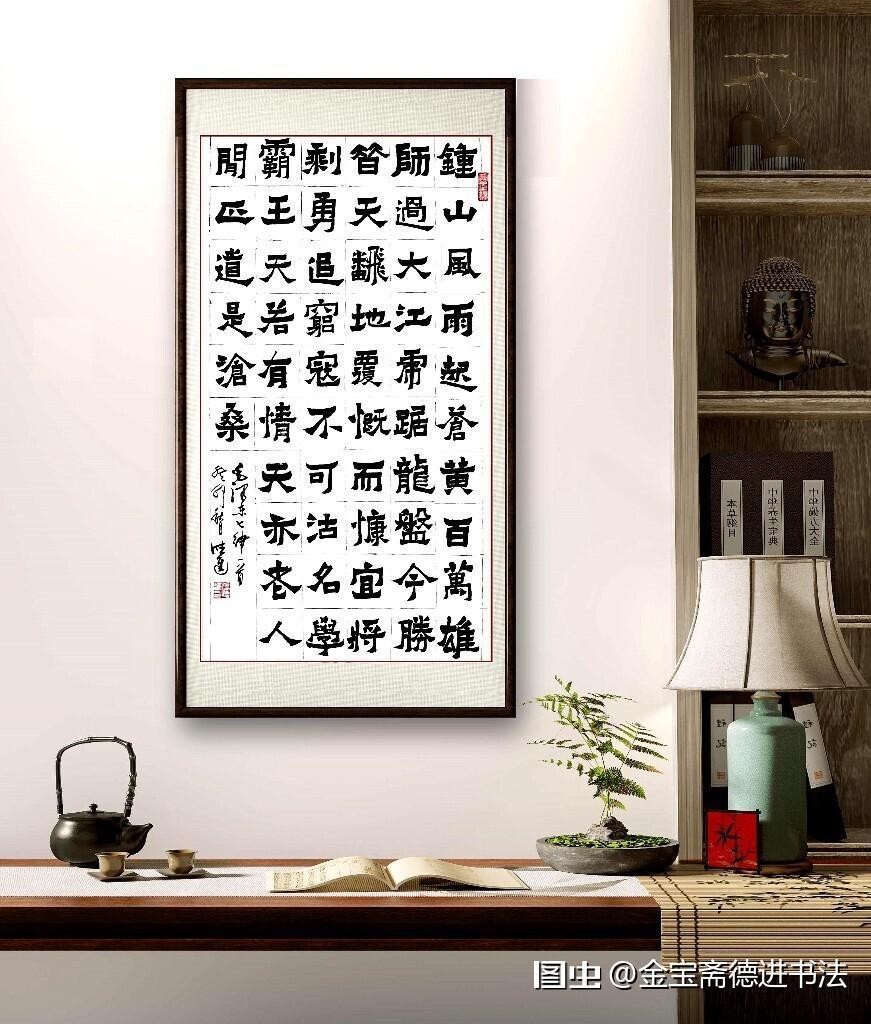 鍾山風雨起蒼黃百萬雄
師過大江虎踞龍盤今勝
昔天飜地覆慨而慷宜將
剩勇追窮寇不可沽名學
霸王天若有情天亦老人
閒正道是滄桑
毛澤東七律一首
癸卯德進
中华偏方大全
中华养生宝典
本草纲目
图虫 @金宝斋德进书法